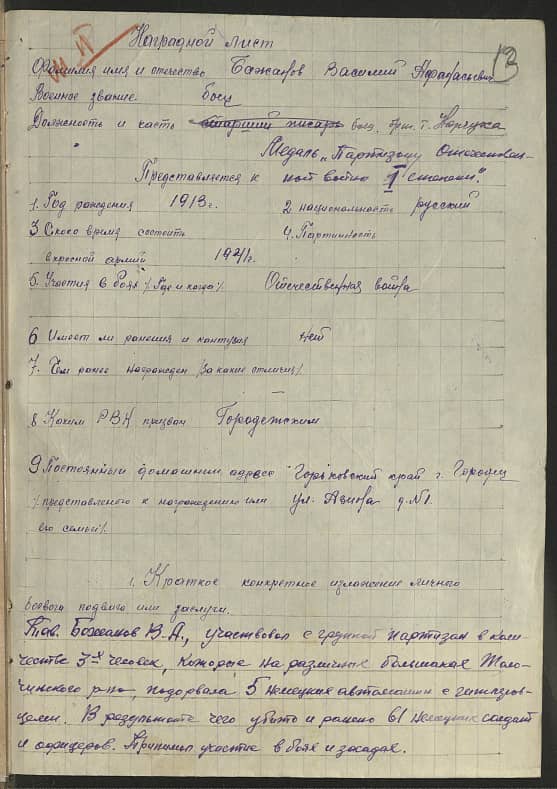 13
Наградной лист
Фамилия имя и отечество Бажанов Василий Афанасьевич
Военное звание боец
Должность и часть старший писарь боец, т.
Медаль „Партизану Отечествен-
Представляется к ной войны II степени".
1. Год рождения 1913 г. 2 национальность русский
3. Ского время состоить 4. Партийность
в красной армии 1941 г.
5. Участия в боях /. Где и когда /. Отечественная война
6 Имеет ли ранения и контузия нет
7. Чем ранее награжден /за какие отличия/.
8 Каким РВК призван Городежским
9 Постоянный домашний адресс Горьковский край г. Городец
/. представленого к награждению или ул. д. №1.
его семьи /.
1. Краткое конкретное изложение личного
боевого подвига или заслуги.
Тов. Божанов В.А., участвовал с группой партизан в коли-
честве 3-х человек, которые на различных большаках Толо-
чинского р-на, подорвала 5 немецких автомашин с гитлеров-
цами. В результате чего убыто и ранено 61 немецких солдат
и офицеров. Принимал участие в боях и засадах.